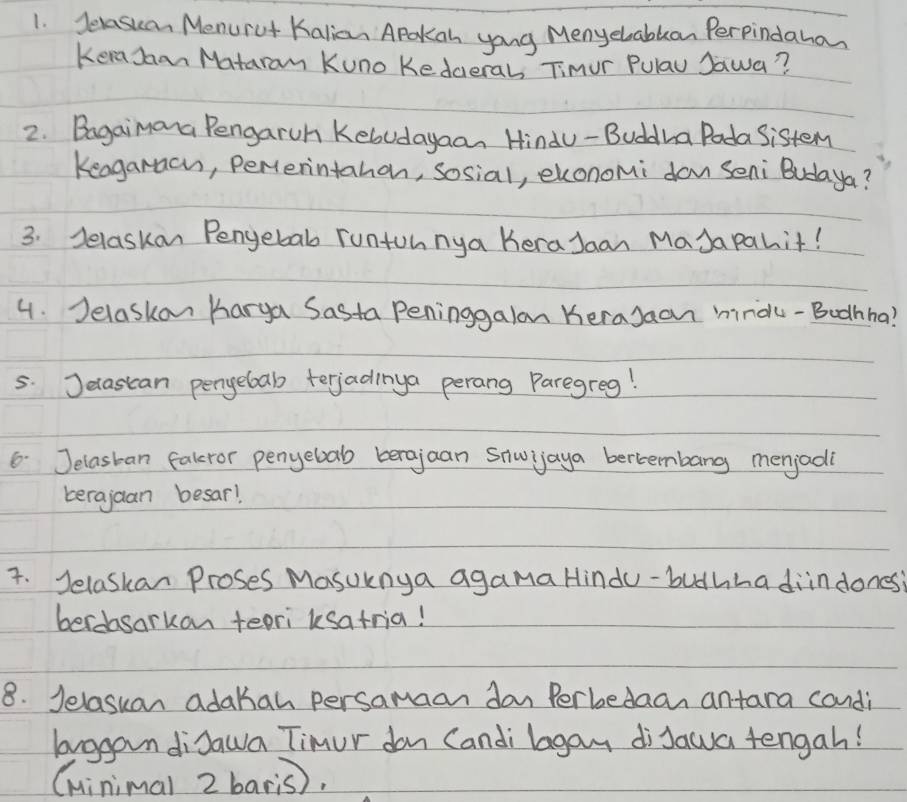 1. Jelaskan Menurut Kalian Apakah yang Menyebabkan Perpindahan
KeraJaan Mataram Kuno Kedaerah Timur Pulau Jawa?
2. Bagaimana Pengaruh Kebudayaan Hindu-Buddha Pada Sistem
Keagamaan, Pemerintahan, Sosial, ekonomi dan Seni Budaya?
3. Jelaskan Penyebab runtuhnya KeraJaan MaJapahit!
4. Jelaskan Karya Sasta Peninggalan KeraJaan hindu-Budhha?
5. Jelaskan penyebab terjadinya perang Paregreg!
6. Jelaskan faktor penyebab kerajaan Sriwijaya berkembang menjadi
kerajaan besar!
7. Jelaskan Proses Masuknya agama Hindu-budhha diindonesi
berdasarkan teori ksatria!
8. Jelaskan adakah persamaan dan Perbedaan antara candi
langgam diJawa Timur dan Candi lagam diJawa tengah!
(Minimal 2 baris).